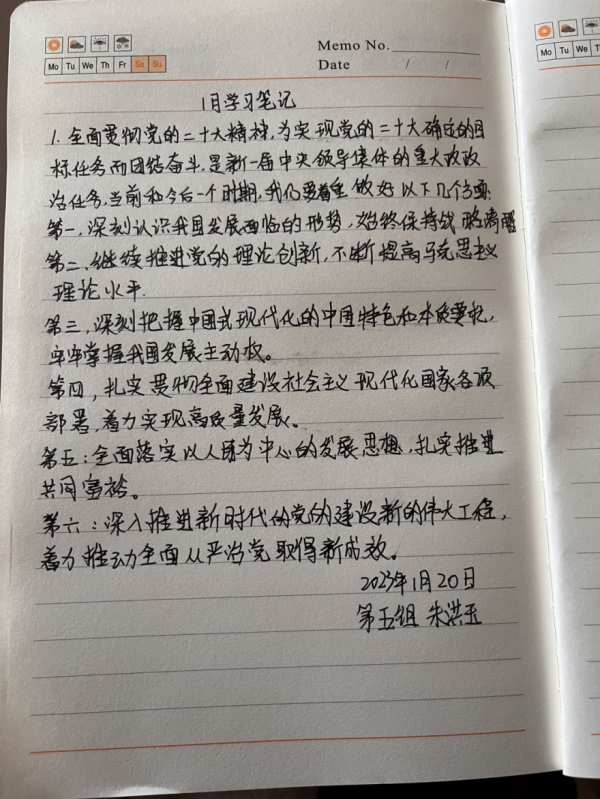 Memo No.
Mo Tu We Th Fr Sa Su
Date / /
1月学习笔记
1. 全面贯彻党的二十大精神,为实现党的二十大确定的目
标任务而团结奋斗,是新一届中央领导集体的重大政政
治任务,当前和今后一个时期,我们要着重做好以下几个方面:
第一,深刻认识我国发展面临的形势,始终保持战略清醒
第二、继续推进党的理论创新,不断提高马克思主义
理论水平.
第三,深刻把握中国式现代化的中国特色和本质要求,
牢牢掌握我国发展主动权。
第四,扎实贯彻全面建设社会主义现代化国家各项
部署,着力实现高质量发展。
第五:全面落实以人民为中心的发展思想,扎实推进
共同富裕。
第六:深入推进新时代的党的建设新的伟大工程,
着力推动全面从严治党取得新成效。
2023年1月20日
第五组 朱洪玉
Mo Tu We T